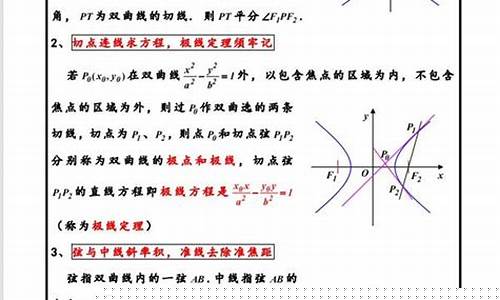 角，PT为双曲线的切线．则PT平分∠F₁PF₂．
2、切点连线求方程，极线定理须牢记
若P₀(x₀,y₀)在双曲线x²/a²-y²/b²=1外，以包含焦点的区域为内，不包含
焦点的区域为外，则过P₀作双曲选的两条
切线，切点为P₁、P₂，则点P₀和切点弦P₁P₂
分别称为双曲线的极点和极线，切点弦
P₁P₂的直线方程即极线方程是x₀x/a²-y₀y/b²=1
（称为极线定理）
y
P₁
P₀
F₁
O
F₂
x
P₂
3、弦与中线斜率积，准线去除准焦距
弦指双曲线内的一弦AB．中线指弦AB的